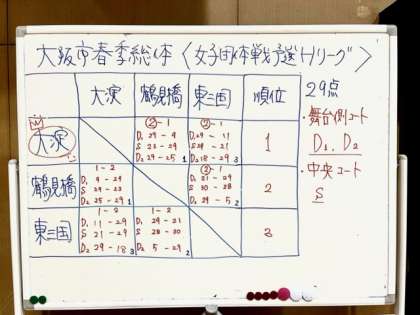 大阪市春季総体〈女子団体戦予選Hリーグ〉
大淀 鶴見橋 東三国 順位
29点
・舞台側コート
D₁、D₂
・中央コート
S
大淀
②-1
D₁ 29-9
S 21-29
D₂ 29-25 1
②-1
D₁ 29-11
S 29-21
D₂ 18-29 3
1
鶴見橋
1-2
D₁ 9-29
S 29-23
D₂ 25-29 1
②-1
D₁ 21-29
S 30-28
D₂ 29-5 2
2
東三国
1-2
D₁ 11-29
S 21-29
D₂ 29-18 3
1-2
D₁ 29-21
S 28-30
D₂ 5-29 2
3